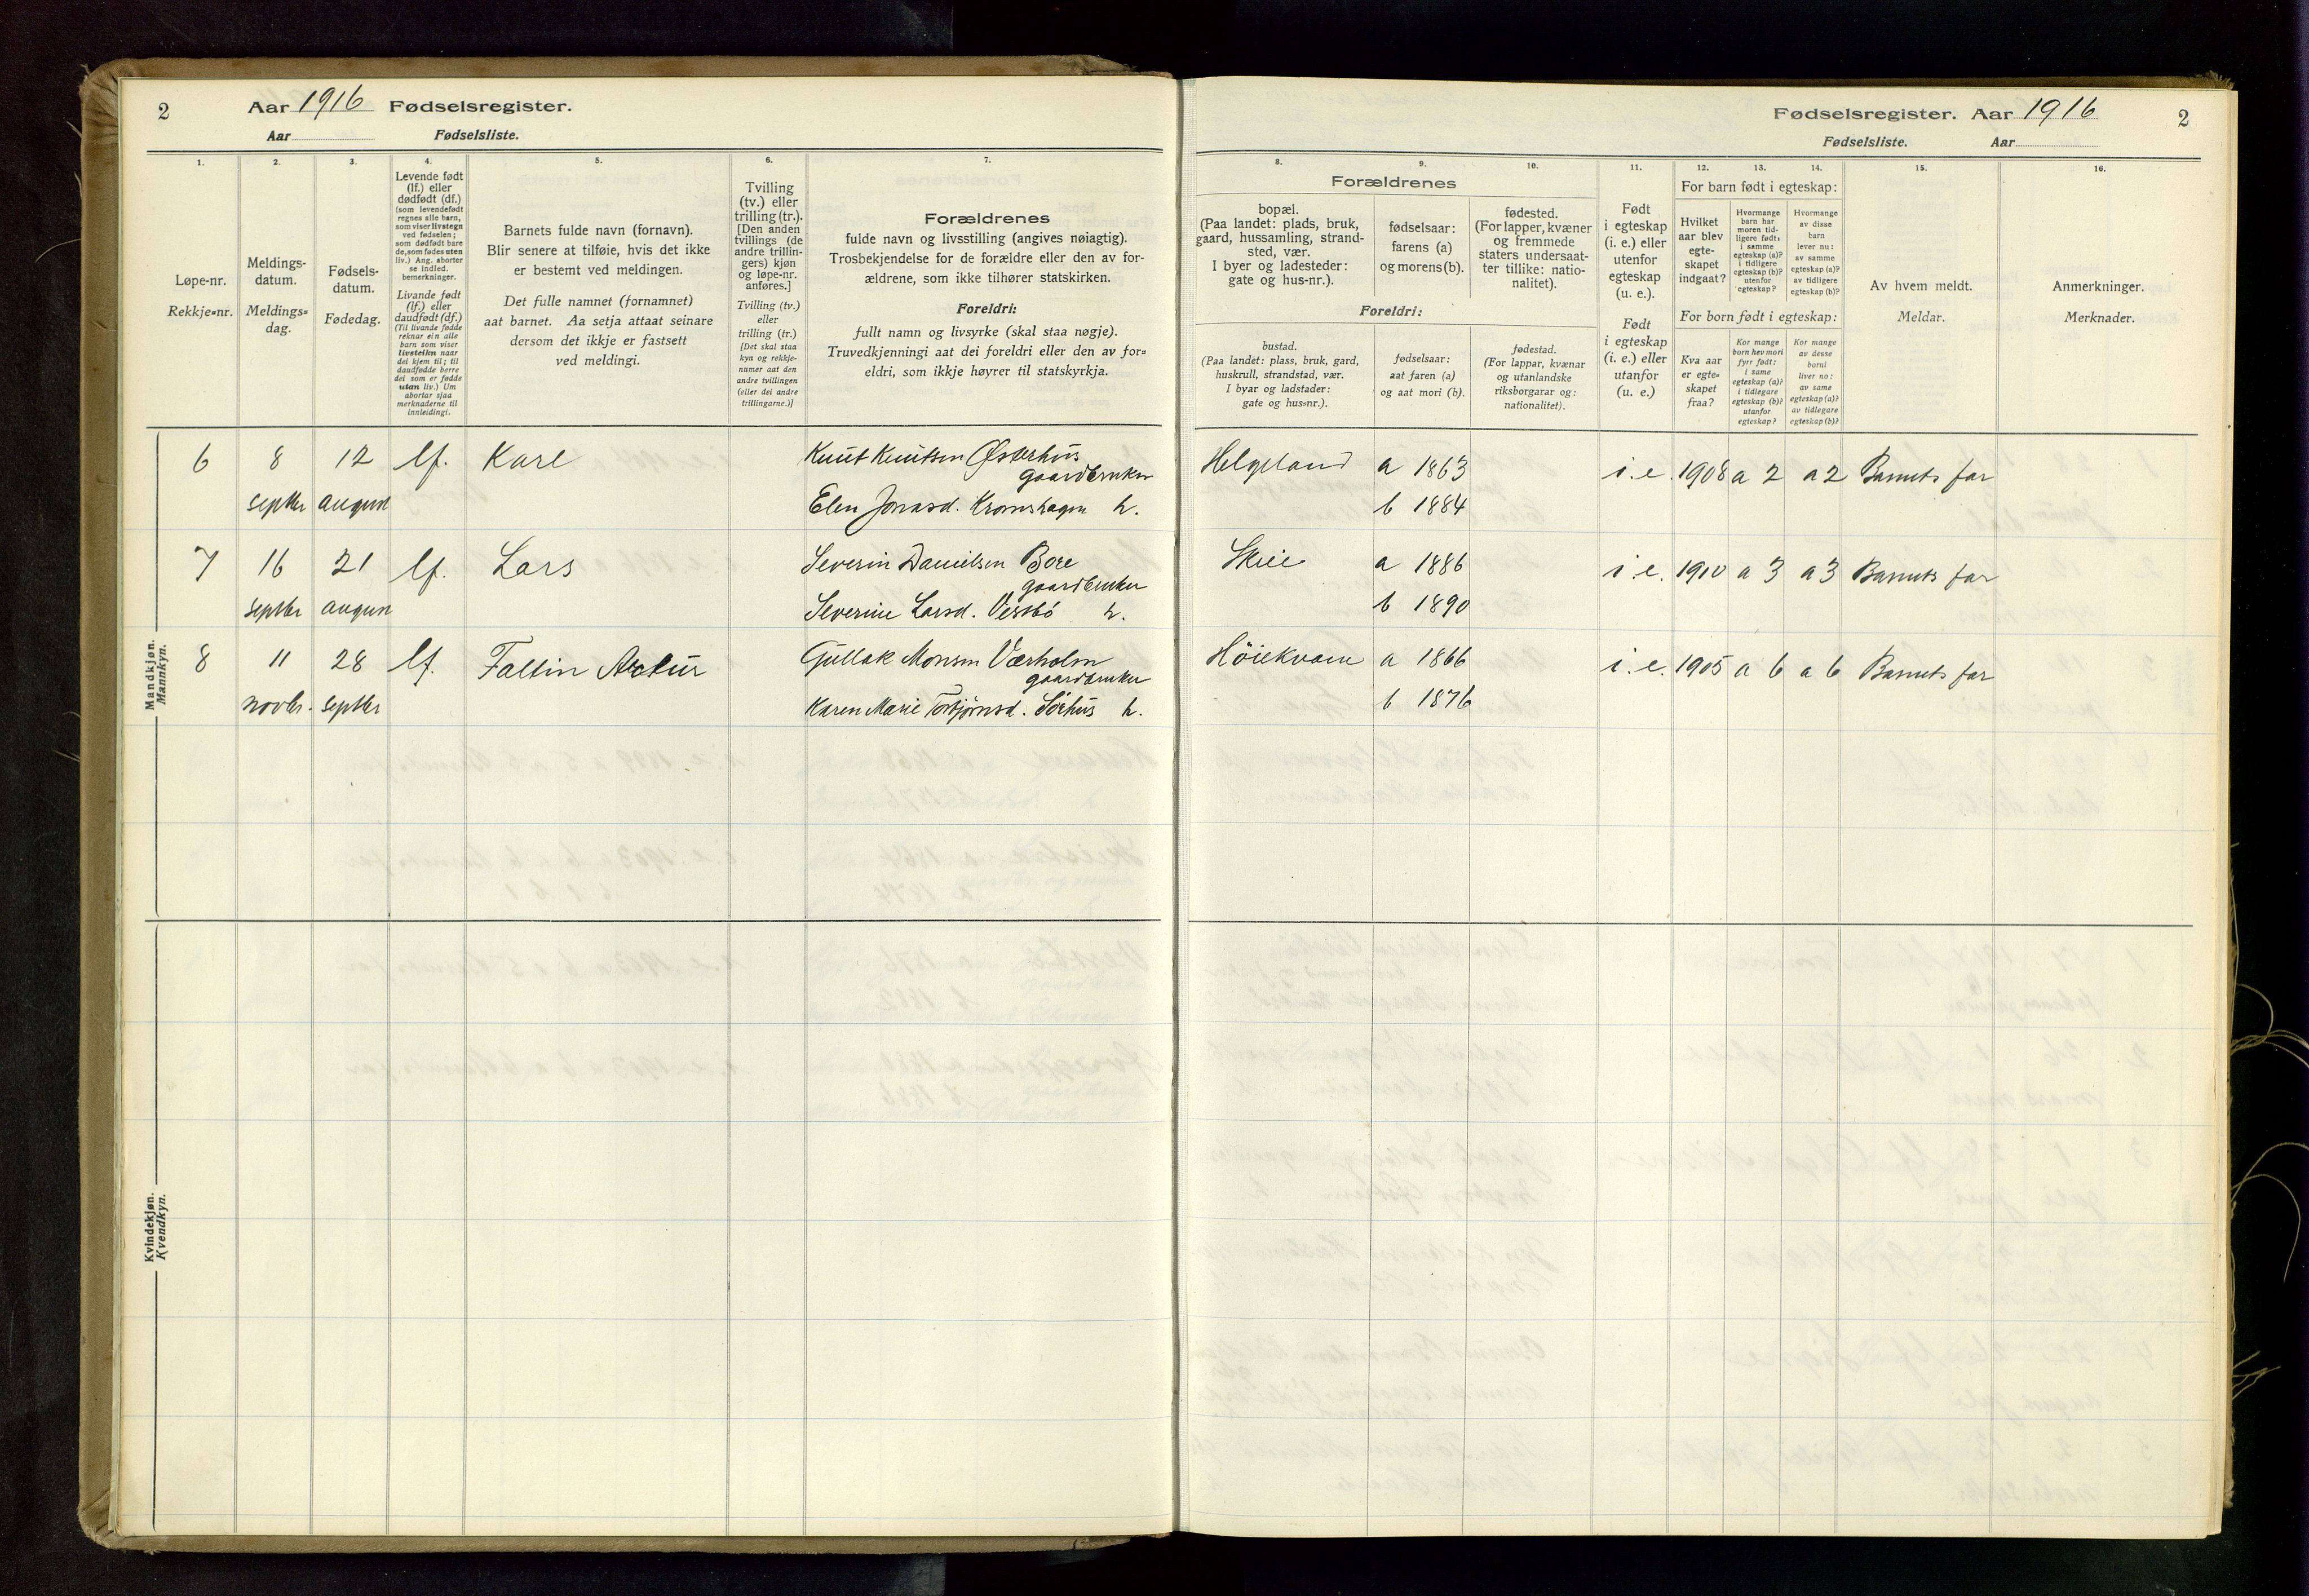 2 Aar 1916 Fødselsregister.
Aar Fødselsliste.
1. 2. 3. 4. 5. 6. 7.
Løpe-nr.
Rekkje=nr.
Meldings-
datum.
Meldings=
dag.
Fødsels-
datum.
Fødedag.
Levende født
(lf.) eller
dødfødt (df.)
(som levendefødt
regnes alle barn,
som viser livstegn
ved fødselen;
som dødfødt bare
de, som fødes uten
liv.) Ang. aborter
se indled.
bemerkninger.
Livande født
(lf.) eller
daudfødt (df.)
(Til livande fødde
reknar ein alle
barn som viser
livsteikn naar
dei kjem til; til
daudfødde berre
dei som er fødde
utan liv.) Um
abortar sjaa
merknaderne til
innleidingi.
Barnets fulde navn (fornavn).
Blir senere at tilføie, hvis det ikke
er bestemt ved meldingen.
Det fulle namnet (fornamnet)
aat barnet. Aa setja attaat seinare
dersom det ikkje er fastsett
ved meldingi.
Tvilling
(tv.) eller
trilling (tr.).
[Den anden
tvillings (de
andre trillin-
gers) kjøn
og løpe-nr.
anføres.]
Tvilling (tv.)
eller
trilling (tr.)
[Det skal staa
kyn og rekkje-
numer aat den
andre tvillingen
(eller dei andre
trillingarne.)]
Forældrenes
fulde navn og livsstilling (angives nøiagtig).
Trosbekjendelse for de forældre eller den av for-
ældrene, som ikke tilhører statskirken.
Foreldri:
fullt namn og livsyrke (skal staa nøgje).
Truvedkjenningi aat dei foreldri eller den av for=
eldri, som ikkje høyrer til statskyrkja.
Mandkjøn.
Mannkyn.
6 8 12 lf. Kare Knut Knutsen Østerhus
gaardbruker
septbr august Elen Jonasd. Kromshagen h.
7 16 21 lf. Lars Severin Danielsen Bore
gaardbruker
septbr august Severine Larsd. Vestbö h.
8 11 28 lf. Faltin Artur Gullak Monsen Værholm
gaardbruker
novbr. septbr Karen Marie Torbjørnsd. Sörhus h.
Kvindekjøn.
Kvendkyn.
Fødselsregister. Aar 1916 2
Fødselsliste. Aar
8. 9. 10. 11. 12. 13. 14. 15. 16.
Forældrenes
bopæl.
(Paa landet: plads, bruk,
gaard, hussamling, strand-
sted, vær.
I byer og ladesteder:
gate og hus-nr.).
fødselsaar:
farens (a)
og morens (b).
fødested.
(For lapper, kvæner
og fremmede
staters undersaat-
ter tillike: natio-
nalitet).
Foreldri:
bustad.
(Paa landet: plass, bruk, gard,
huskrull, strandstad, vær.
I byar og ladstader:
gate og hus=nr.).
fødselsaar:
aat faren (a)
og aat mori (b).
fødestad.
(For lappar, kvænar
og utanlandske
riksborgarar og:
nationalitet).
Født
i egteskap
(i. e.) eller
utenfor
egteskap
(u. e.).
Født
i egteskap
(i. e.) eller
utanfor
(u. e.)
For barn født i egteskap:
Hvilket
aar blev
egte-
skapet
indgaat?
Hvormange
barn har
moren tid-
ligere født:
i samme
egteskap (a)?
i tidligere
egteskap (b)?
utenfor
egteskap?
Hvormange
av disse
barn
lever nu:
av samme
egteskap (a)?
av tidligere
egteskap (b)?
For born født i egteskap:
Kva aar
er egte=
skapet
fraa?
Kor mange
born hev mori
fyrr født:
i same
egteskap (a)?
i tidlegare
egteskap (b)?
utanfor
egteskap?
Kor mange
av desse
borni
liver no:
av same
egteskap (a)?
av tidlegare
egteskap (b)?
Av hvem meldt.
Meldar.
Anmerkninger.
Merknader.
Helgeland a 1863 i. e. 1908 a 2 a 2 Barnets far
b 1884
Skeie a 1886 i. e. 1910 a 3 a 3 Barnets far
b 1890
Höiekvam a 1866 i. e. 1905 a 6 a 6 Barnets far
b 1876